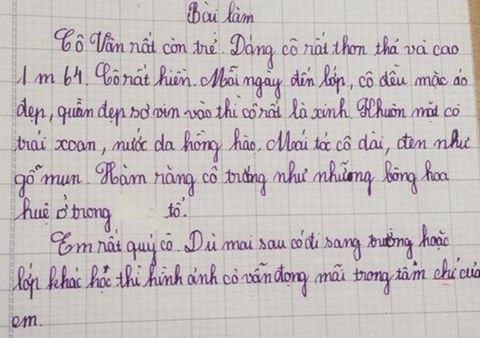 Bài làm
Cô Vân rất còn trẻ. Dáng cô rất thon thả và cao
1 m 64. Cô rất hiền. Mỗi ngày đến lớp, cô đều mặc áo
đẹp, quần đẹp sơ vin vào thì cô rất là xinh. Khuôn mặt có
trái xoan, nước da hồng hào. Mái tóc cô dài, đen như
gỗ mun. Hàm răng cô trắng như những bông hoa
huê ở trong tổ.
Em rất quý cô. Dù mai sau có đi sang trường hoặc
lớp khác học thì hình ảnh cô vẫn đọng mãi trong tâm chí của
em.